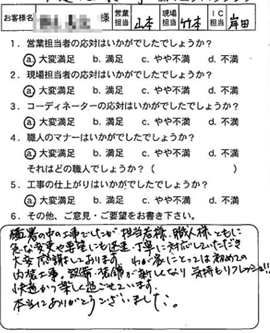 お客様名 様 営業担当 山本 現場担当 竹本 IC担当 岸田
1. 営業担当者の応対はいかがでしたでしょうか?
a. 大変満足 b. 満足 c. やや不満 d. 不満
2. 現場担当者の応対はいかがでしたでしょうか?
a. 大変満足 b. 満足 c. やや不満 d. 不満
3. コーディネーターの応対はいかがでしたでしょうか?
a. 大変満足 b. 満足 c. やや不満 d. 不満
4. 職人のマナーはいかがでしたでしょうか?
a. 大変満足 b. 満足 c. やや不満 d. 不満
それはどの職人でしょうか?( )
5. 工事の仕上がりはいかがでしたでしょうか?
a. 大変満足 b. 満足 c. やや不満 d. 不満
6. その他、ご意見・ご要望をお書き下さい。
酷暑の中の工事でしたが担当者様、職人様ともに
急な変更や要望にも迅速、丁寧に対応していただき
大変感謝しております。わが家にとっては初めての
内装工事。設備・装備が新しくなり気持もリフレッシュ!!
快適かつ楽しく過ごせています。
本当にありがとうございました。